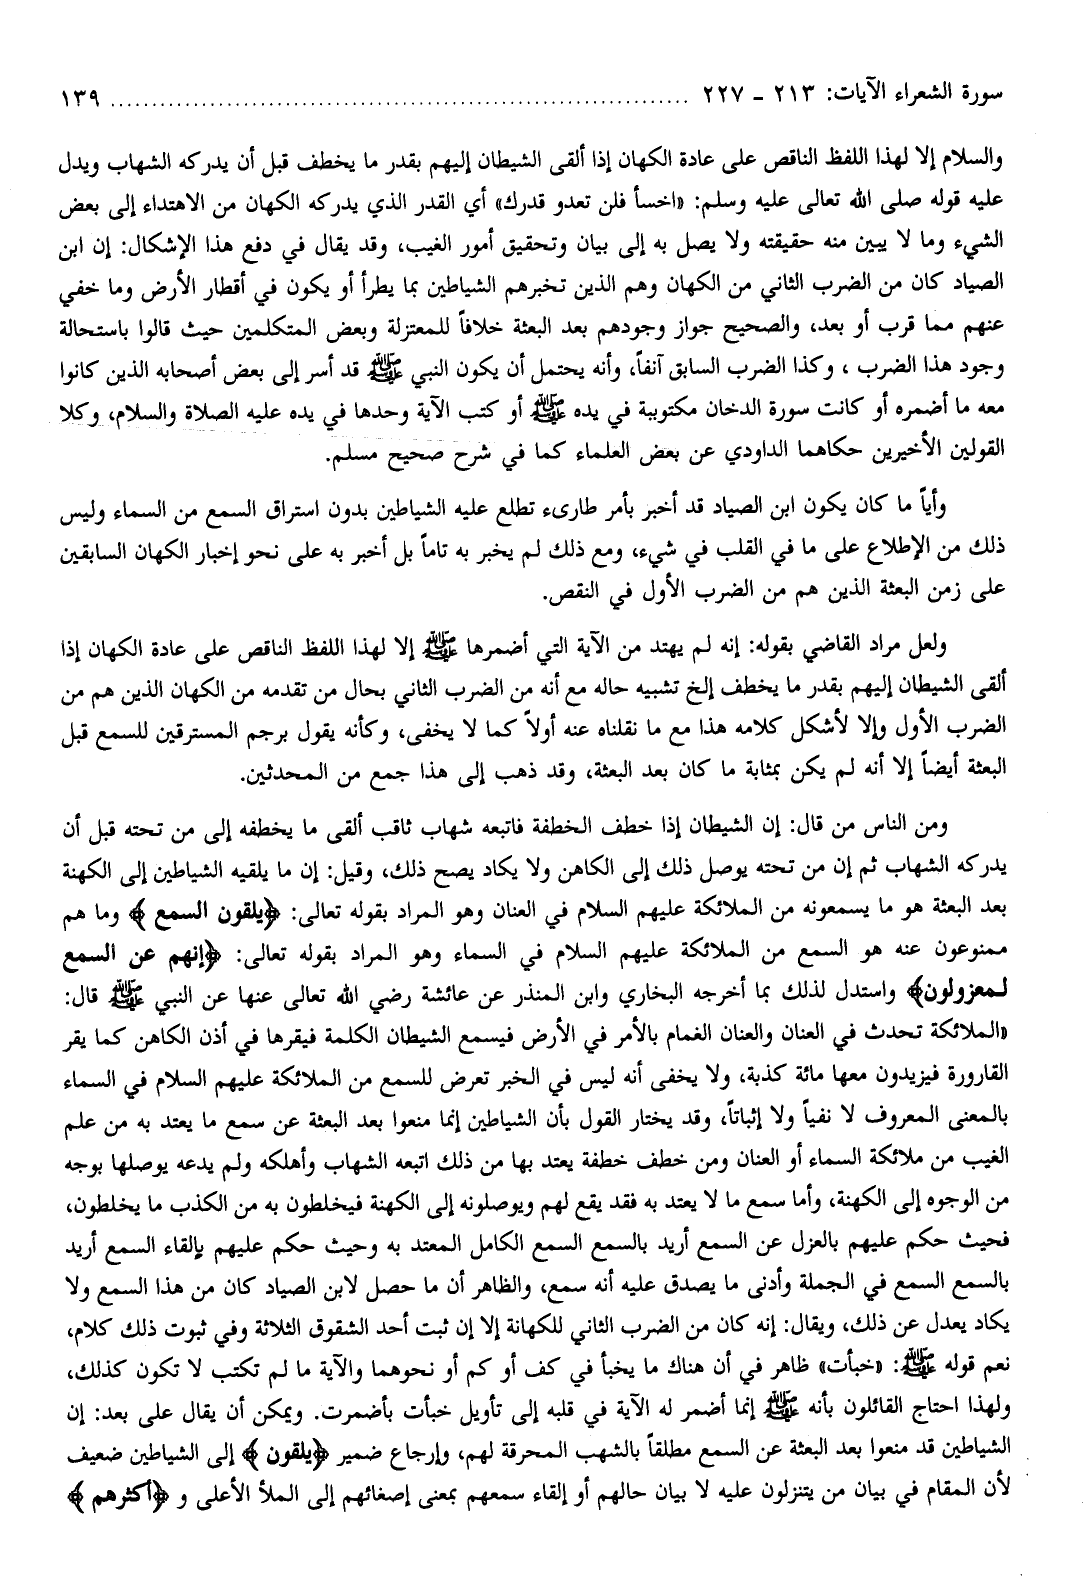 سورة الشعراء الآيات: ٢١٣ ـ ٢٢٧ ........................................................................ ١٣٩
والسلام إلا لهذا اللفظ الناقص على عادة الكهان إذا ألقى الشيطان إليهم بقدر ما يخطف قبل أن يدركه الشهاب ويدل
عليه قوله صلى الله تعالى عليه وسلم: «اخسأ فلن تعدو قدرك» أي القدر الذي يدركه الكهان من الاهتداء إلى بعض
الشيء وما لا يبين منه حقيقته ولا يصل به إلى بيان وتحقيق أمور الغيب، وقد يقال في دفع هذا الإشكال: إن ابن
الصياد كان من الضرب الثاني من الكهان وهم الذين تخبرهم الشياطين بما يطرأ أو يكون في أقطار الأرض وما خفي
عنهم مما قرب أو بعد، والصحيح جواز وجودهم بعد البعثة خلافاً للمعتزلة وبعض المتكلمين حيث قالوا باستحالة
وجود هذا الضرب ، وكذا الضرب السابق آنفاً، وأنه يحتمل أن يكون النبي ﷺ قد أسر إلى بعض أصحابه الذين كانوا
معه ما أضمره أو كانت سورة الدخان مكتوبة في يده ﷺ أو كتب الآية وحدها في يده عليه الصلاة والسلام، وكلا
القولين الأخيرين حكاهما الداودي عن بعض العلماء كما في شرح صحيح مسلم.
وأياً ما كان يكون ابن الصياد قد أخبر بأمر طارىء تطلع عليه الشياطين بدون استراق السمع من السماء وليس
ذلك من الإطلاع على ما في القلب في شيء، ومع ذلك لم يخبر به تاماً بل أخبر به على نحو إخبار الكهان السابقين
على زمن البعثة الذين هم من الضرب الأول في النقص.
ولعل مراد القاضي بقوله: إنه لم يهتد من الآية التي أضمرها ﷺ إلا لهذا اللفظ الناقص على عادة الكهان إذا
ألقى الشيطان إليهم بقدر ما يخطف إلخ تشبيه حاله مع أنه من الضرب الثاني بحال من تقدمه من الكهان الذين هم من
الضرب الأول وإلا لأشكل كلامه هذا مع ما نقلناه عنه أولاً كما لا يخفى، وكأنه يقول برجم المسترقين للسمع قبل
البعثة أيضاً إلا أنه لم يكن بمثابة ما كان بعد البعثة، وقد ذهب إلى هذا جمع من المحدثين.
ومن الناس من قال: إن الشيطان إذا خطف الخطفة فاتبعه شهاب ثاقب ألقى ما يخطفه إلى من تحته قبل أن
يدركه الشهاب ثم إن من تحته يوصل ذلك إلى الكاهن ولا يكاد يصح ذلك، وقيل: إن ما يلقيه الشياطين إلى الكهنة
بعد البعثة هو ما يسمعونه من الملائكة عليهم السلام في العنان وهو المراد بقوله تعالى: ﴿يلقون السمع﴾ وما هم
ممنوعون عنه هو السمع من الملائكة عليهم السلام في السماء وهو المراد بقوله تعالى: ﴿إنهم عن السمع
لمعزولون﴾ واستدل لذلك بما أخرجه البخاري وابن المنذر عن عائشة رضي الله تعالى عنها عن النبي ﷺ قال:
«الملائكة تحدث في العنان والعنان الغمام بالأمر في الأرض فيسمع الشيطان الكلمة فيقرها في أذن الكاهن كما يقر
القارورة فيزيدون معها مائة كذبة، ولا يخفى أنه ليس في الخبر تعرض للسمع من الملائكة عليهم السلام في السماء
بالمعنى المعروف لا نفياً ولا إثباتاً، وقد يختار القول بأن الشياطين إنما منعوا بعد البعثة عن سمع ما يعتد به من علم
الغيب من ملائكة السماء أو العنان ومن خطف خطفة يعتد بها من ذلك اتبعه الشهاب وأهلكه ولم يدعه يوصلها بوجه
من الوجوه إلى الكهنة، وأما سمع ما لا يعتد به فقد يقع لهم ويوصلونه إلى الكهنة فيخلطون به من الكذب ما يخلطون،
فحيث حكم عليهم بالعزل عن السمع أريد بالسمع السمع الكامل المعتد به وحيث حكم عليهم بإلقاء السمع أريد
بالسمع السمع في الجملة وأدنى ما يصدق عليه أنه سمع، والظاهر أن ما حصل لابن الصياد كان من هذا السمع ولا
يكاد يعدل عن ذلك، ويقال: إنه كان من الضرب الثاني للكهانة إلا إن ثبت أحد الشقوق الثلاثة وفي ثبوت ذلك كلام،
نعم قوله ﷺ: «خبأت» ظاهر في أن هناك ما يخبأ في كف أو كم أو نحوهما والآية ما لم تكتب لا تكون كذلك،
ولهذا احتاج القائلون بأنه ﷺ إنما أضمر له الآية في قلبه إلى تأويل خبأت بأضمرت. ويمكن أن يقال على بعد: إن
الشياطين قد منعوا بعد البعثة عن السمع مطلقاً بالشهب المحرقة لهم، وإرجاع ضمير ﴿يلقون﴾ إلى الشياطين ضعيف
لأن المقام في بيان من يتنزلون عليه لا بيان حالهم أو إلقاء سمعهم بمعنى إصغائهم إلى الملأ الأعلى و ﴿أكثرهم﴾